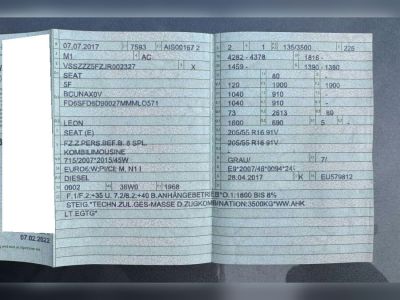 07.07.2017 7593 AIS00167 2
M1 AC
VSSZZZ5FZJR002327 X
SEAT
5F
BCUNAX0V
FD6SFD6D90027MMMLO571
LEON
SEAT (E)
FZ.Z.PERS.BEF.B. 8 SPL.
KOMBILIMOUSINE
715/2007*2015/45W
EURO6;W;PI/CI; M, N1 I
DIESEL
0002 36W0 1968
2 1 135/3500 225
4282 - 4378 1816 -
1459 - 1390 - 1390
- 80 -
120 1900 - 1900
1040 910 -
1040 910 -
73 2613 80
1600 690 5 -
205/55 R16 91V
205/55 R16 91V
-
GRAU/ 7/
E9*2007/46*0094*24
28.04.2017 K EU579812
F.1/F.2:+35 U. 7.2/8.2:+40 B.ANHÄNGEBETRIEB*O.1:1800 BIS 8%
STEIG.*TECHN.ZUL.GES-MASSE D.ZUGKOMBINATION:3500KG*WW.AHK
LT.EGTG*
07.02.2022